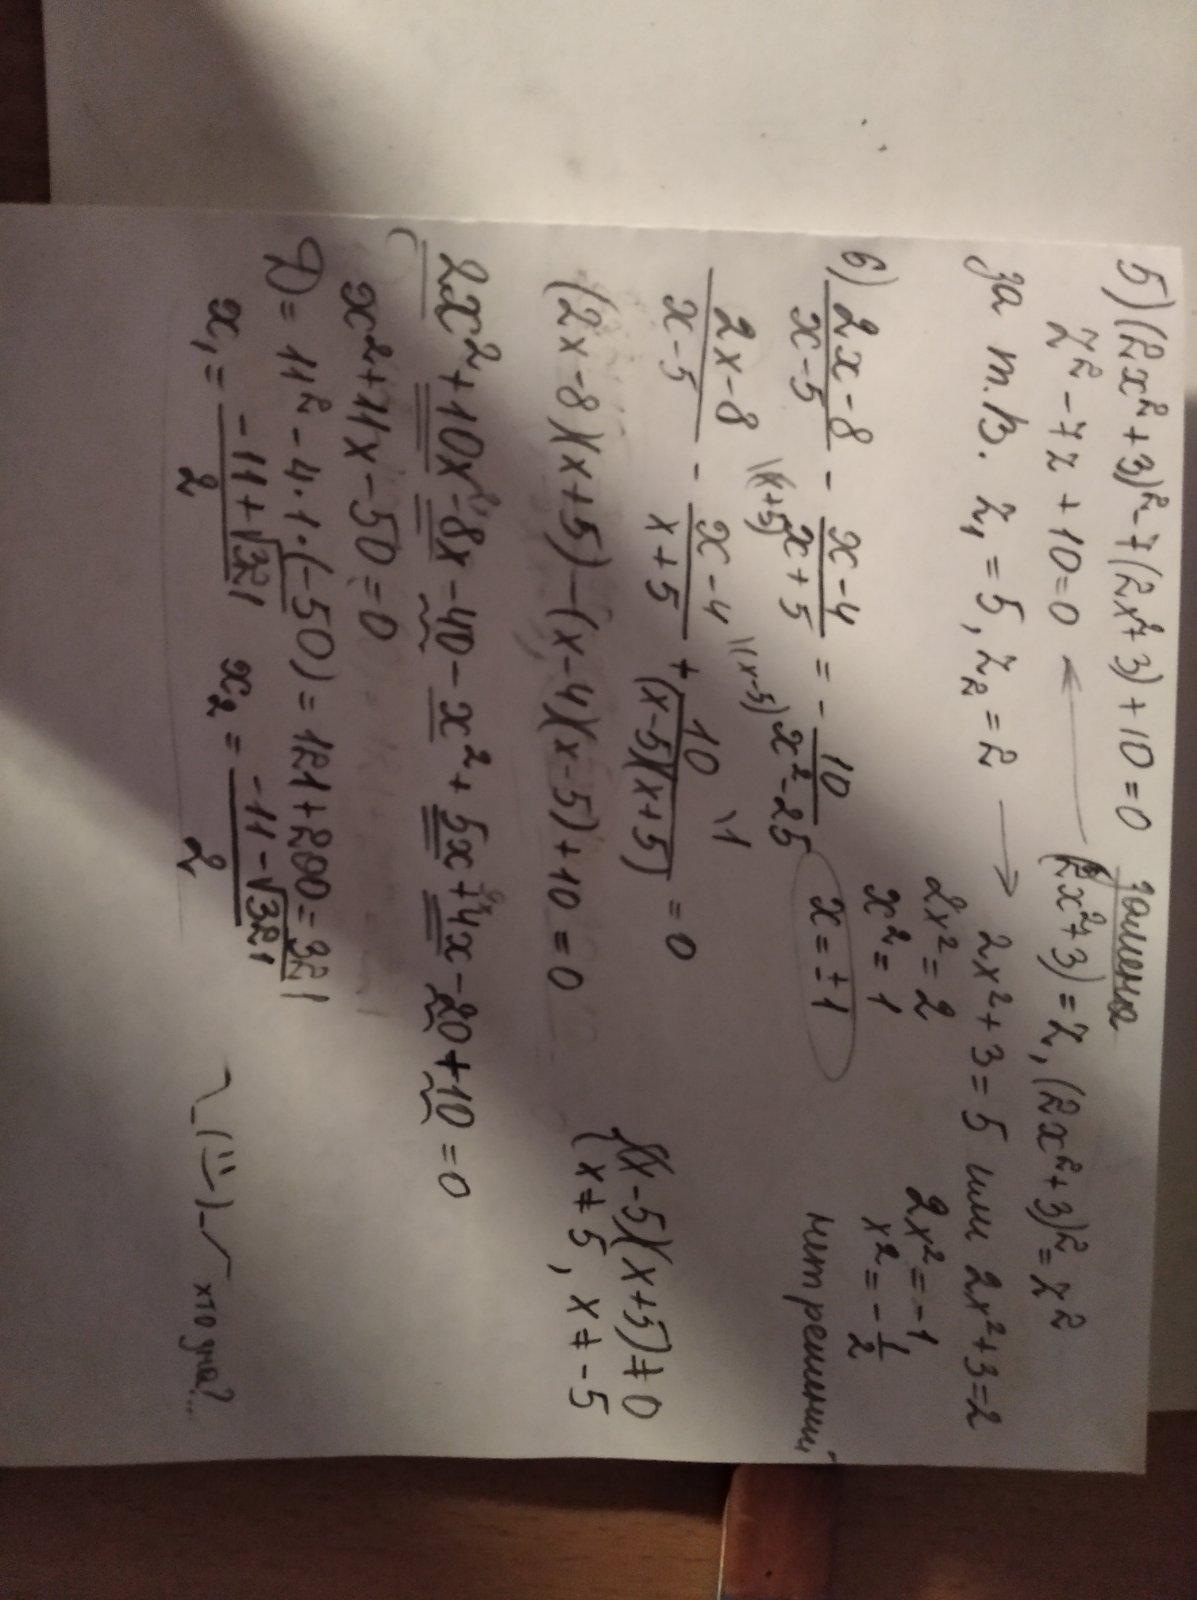 5) (2x²+3)²-7(2x²+3)+10=0 замена
z²-7z+10=0 ← (2x²+3)=z, (2x²+3)²=z²
за т.В. z₁=5, z₂=2 → 2x²+3=5 или 2x²+3=2
2x²=2 2x²=-1
x²=1 x²=-1/2
x=±1 нет решений
6) (2x-8)/(x-5) - (x-4)/(x+5) = -10/(x²-25)
(2x-8)/(x-5) \\(x+5) - (x-4)/(x+5) \\(x-5) + 10/((x-5)(x+5)) \1 = 0
(x-5)(x+5)≠0
(2x-8)(x+5)-(x-4)(x-5)+10=0 x≠5, x≠-5
2x²+10x-8x-40-x²+5x+4x-20+10=0
x²+11x-50=0
D=11²-4·1·(-50)=121+200=321
x₁=(-11+√321)/2 x₂=(-11-√321)/2